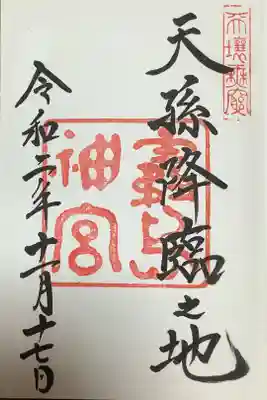 天壤無窮
天孫降臨之地
霧島
神宮
令和二年十一月十七日